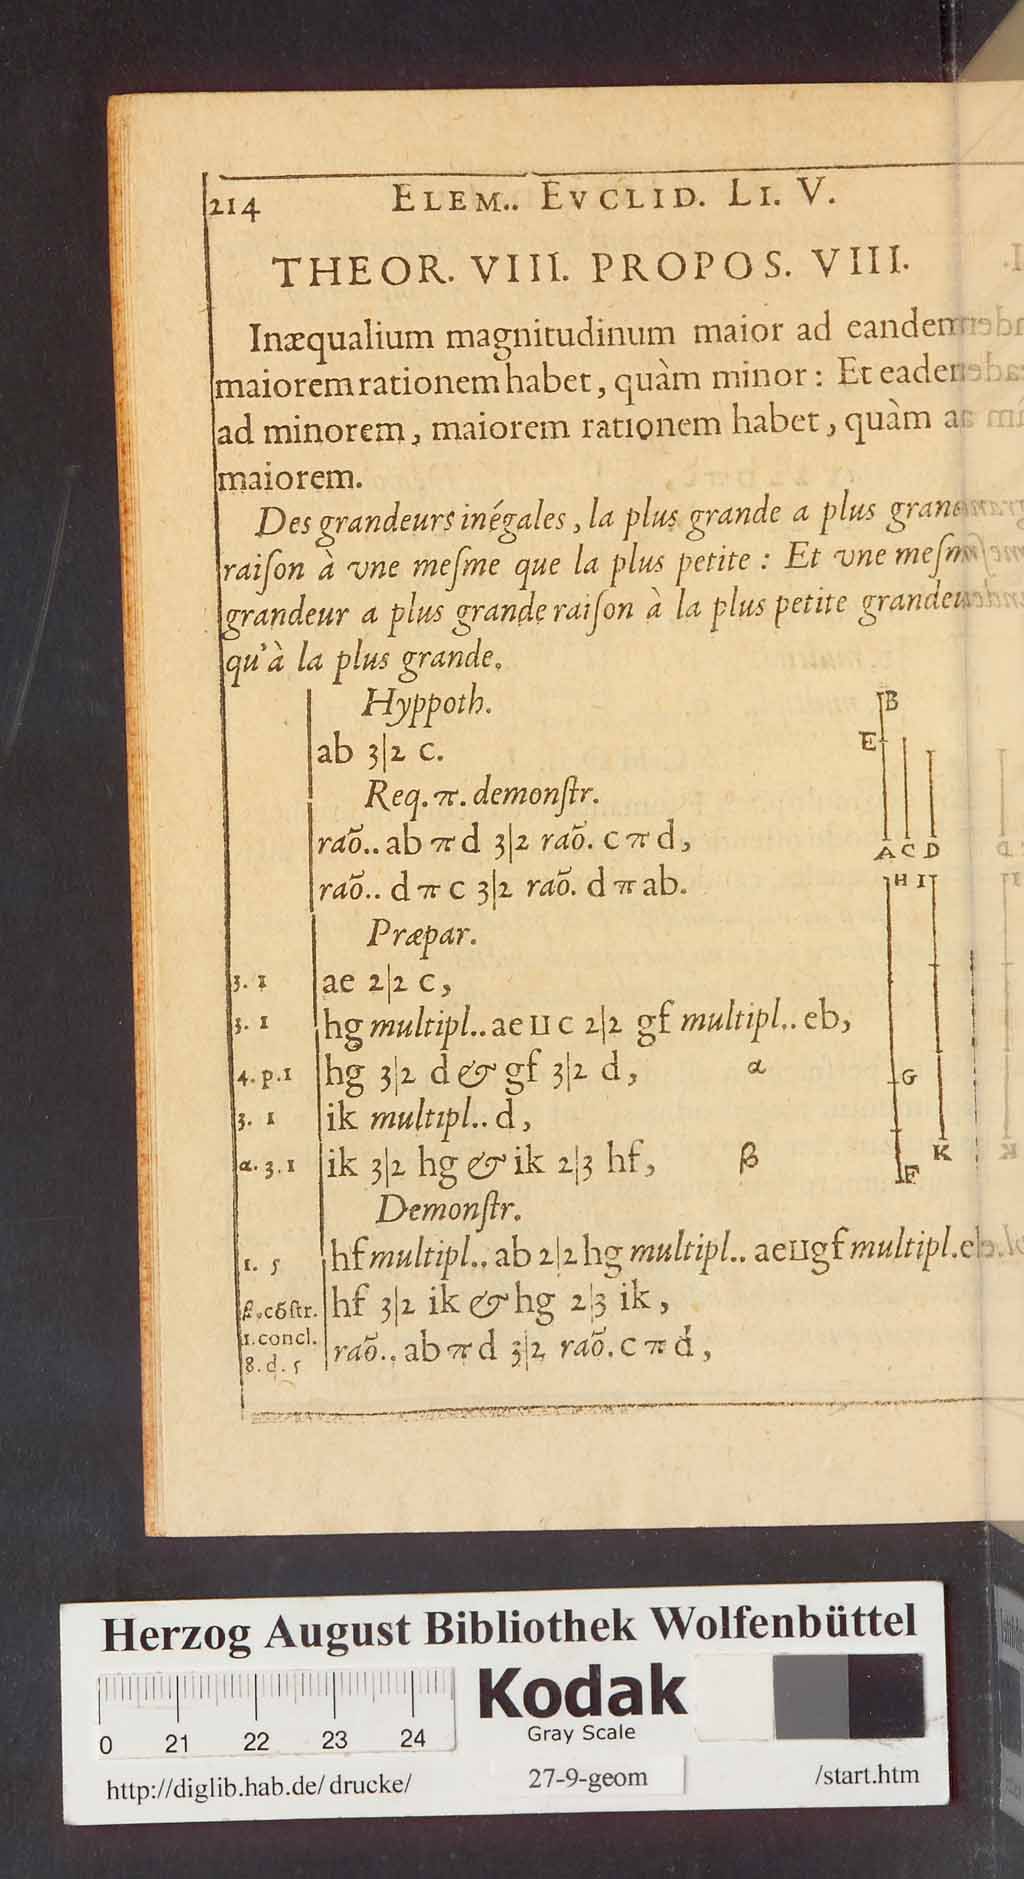 214 ELEM.. EVCLID. LI. V.
THEOR. VIII. PROPOS. VIII.
Inæqualium magnitudinum maior ad eandem
maiorem rationem habet, quàm minor: Et eadem
ad minorem, maiorem rationem habet, quàm ad
maiorem.
Des grandeurs inégales, la plus grande a plus grande
raiſon à vne meſme que la plus petite: Et vne meſme
grandeur a plus grande raiſon à la plus petite grandeur
qu'à la plus grande.
Hyppoth.
ab 3|2 c.
Req. π. demonſtr.
raõ.. ab π d 3|2 raõ. c π d,
raõ.. d π c 3|2 raõ. d π ab.
Præpar.
3. 1 ae 2|2 c,
3. 1 hg multipl.. ae ⊔ c 2|2 gf multipl.. eb,
4. p. 1 hg 3|2 d & gf 3|2 d, α
3. 1 ik multipl.. d,
α. 3. 1 ik 3|2 hg & ik 2|3 hf, β
Demonſtr.
1. 5 hf multipl.. ab 2|2 hg multipl.. ae ⊔ gf multipl. eb
β. cõſtr. hf 3|2 ik & hg 2|3 ik,
1. concl.
8. d. 5 raõ.. ab π d 3|2 raõ. c π d,
B
E
A C D
H I
G
K
F
Herzog August Bibliothek Wolfenbüttel
Kodak
Gray Scale
0 21 22 23 24
http://diglib.hab.de/drucke/ 27-9-geom /start.htm